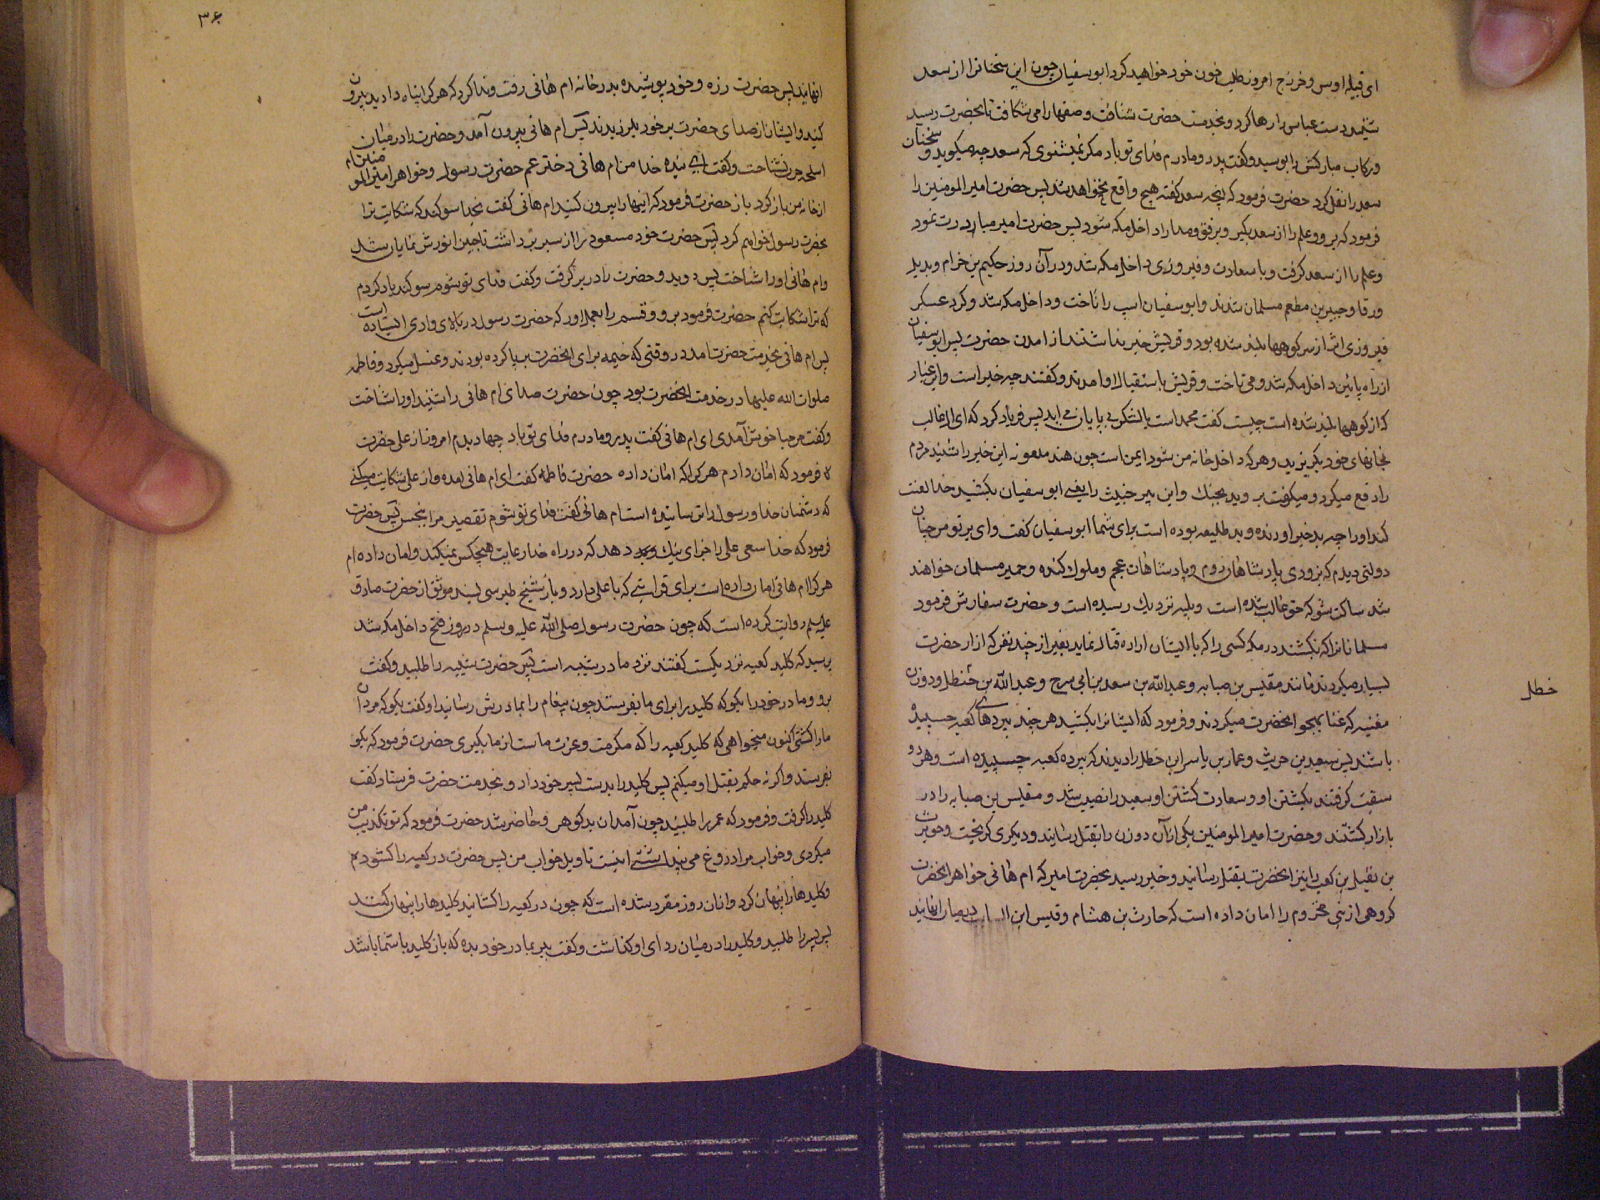 ای قبیله اوس و خزرج امروز طلب خون خود خواهید کرد ابو سفیان چون این سخنانرا از سعد
شنید دست عباس را رها کرد و بخدمت حضرت شتافت و صفها را می شکافت تا بحضرت رسید
و رکاب مبارکش را بوسید و گفت پدر و مادرم فدای تو باد مگر نمیشنوی که سعد چه میگوید و سخنان
سعد را نقل کرد حضرت فرمود که آنچه سعد گفته هیچ واقع نخواهد شد پس حضرت امیر المومنین را
فرمود که برو و علم را از سعد بگیر و برفق و مدارا داخل مکه شو پس حضرت امیر مبادرت نمود
و علم را از سعد گرفت و با سعادت و فیروزی داخل مکه شد و در آن روز حکیم بن خرام و بدیل
ورقا و جبیر بن مطعم مسلمان شدند و ابو سفیان اسب را تاخت و داخل مکه شد و گرد عسکر
فیروزی اثر از سر کوهها بلند شده بود و قریش خبر نداشتند از امدن حضرت پس ابو سفیان
از راه پائین داخل مکه شد و می تاخت و قریش باستقبال او امدند و گفتند چه خبر است و این غبار
که از کوهها بلند شده است چیست گفت محمد است با لشکر بی پایان می آید پس فریاد کرد که ای ال غالب
بخانهای خود بگریزید و هر که داخل خانه من شود ایمن است چون هند ملعونه این خبر را شنید مردم
را دفع میکرد و میگفت بروید بجنگ و این پیر خبیث را یعنی ابو سفیان بکشید خدا لعنت
کند او را چه بد خبر اورنده و بد طلیعه بوده است برای شما ابو سفیان گفت وای بر تو من چنان
دولتی دیدم که بزودی پادشاهان روم و پادشاهان عجم و ملوک کنده و حمیر مسلمان خواهند
شد ساکت شو که حق غالب شده است و بلیه نزدیک رسیده است و حضرت سفارش فرمود
مسلمانانرا که نکشند در مکه کسی را که با ایشان اراده قتال نماید بغیر از چند نفر که ازار حضرت
بسیار میکردند مانند مقیس بن صبابه و عبد الله بن سعد بن ابی سرح و عبد الله بن خنطل و دو زن
خطل
مغنیه که غنا بهجو انحضرت میکردند و فرمود که ایشانرا بکشید هر چند بپردهای کعبه چسپیده
باشند پس سعید بن حریث و عمار بن یاسر ابن خطل را دیدند که بپرده کعبه چسپیده است و هر دو
سبقت گرفتند بکشتن او و سعادت کشتن او سعید را نصیب شد و مقیس بن صبابه را در
بازار کشتند و حضرت امیر المومنین یکی از آن دو زن را بقتل رسانید و دیگری گریخت و حویرث
بن نقیل بن کعب را نیز انحضرت بقتل رسانید و خبر رسید بحضرت امیر که ام هانی خواهر انحضرت
گروهی از بنی مخزوم را امان داده است که حارث بن هشام و قیس ابن
۳۶
انهایند پس حضرت زره و خود پوشیده بدر خانه ام هانی رفت و ندا کرد که هر کرا پناه داده اید بیرون
کنید و ایشان از صدای حضرت بر خود بلرزیدند پس ام هانی بیرون آمد و حضرت را در میان
اسلحه چون نشناخت و گفت ای بنده خدا من ام هانی دختر عم حضرت رسول و خواهر امیر المومنینم
از خانه من باز گرد باز حضرت فرمود که اینها را بیرون کنید ام هانی گفت بخدا سوگند که شکایت ترا
بحضرت رسول خواهم کرد پس حضرت خود مسعود را از سر برداشت تا جبین انورش نمایان شد
و ام هانی او را شناخت پس دوید و حضرت را در بر گرفت و گفت فدای تو شوم سوگند یاد کردم
که ترا شکایت کنم حضرت فرمود برو و قسم را بعمل اور که حضرت رسول در بالای وادی ایستاده است
پس ام هانی بخدمت حضرت امد در وقتی که خیمه برای انحضرت بر پا کرده بودند و غسل میکرد و فاطمه
صلوات الله علیها در خدمت انحضرت بود چون حضرت صدای ام هانی را شنید او را شناخت
و گفت مرحبا خوش آمدی ای ام هانی گفت پدر و مادرم فدای تو باد چها دیدم امروز از علی حضرت
فرمود که امان دادم هر کرا که امان داده حضرت فاطمه گفت ای ام هانی امده و از علی شکایت میکنی
که دشمنان خدا و رسول را ترسانیده است ام هانی گفت فدای تو شوم تقصیر مرا ببخش پس حضرت
فرمود که خدا سعی علی را جزای نیک دهد که در راه خدا رعایت هیچکس نمیکند و امان داده ام
هر کرا ام هانی امان داده است برای قرابتی که با علی دارد و باز شیخ طبرسی بسند موثق از حضرت صادق
علیه السلم روایت کرده است که چون حضرت رسول صلی الله علیه و سلم در روز فتح داخل مکه شد
پرسید که کلید کعبه نزد کیست گفتند نزد مادر شیبه است پس حضرت شیبه را طلبید و گفت
برو و مادر خود را بگو که کلید را برای ما بفرستد چون پیغام را بمادرش رسانید او گفت بگو که مردان
ما را کشتی اکنون میخواهی که کلید کعبه را که مکرمت و عزت ماست از ما بگیری حضرت فرمود که بگو
بفرستد و اگر نه حکم بقتل او میکنم پس کلید را بدست پسر خود داد و بخدمت حضرت فرستاد گفت
کلید را گرفت و فرمود که عمر را طلبید چون آمد ان بدگوهر و حاضر شد حضرت فرمود که تو تکذیب من
میکردی و خواب مرا دروغ می پنداشتی اینست تاویل خواب من پس حضرت در کعبه را گشودیم
و کلیدها را پنهان کرد و ازان روز مقرر شده است که چون در کعبه را گشایند کلیدها را پنهان کنند
پس پسر را طلبید و کلید را در میان ردای او گذاشت و گفت ببر بمادر خود بده که باز کلید با شما باشد